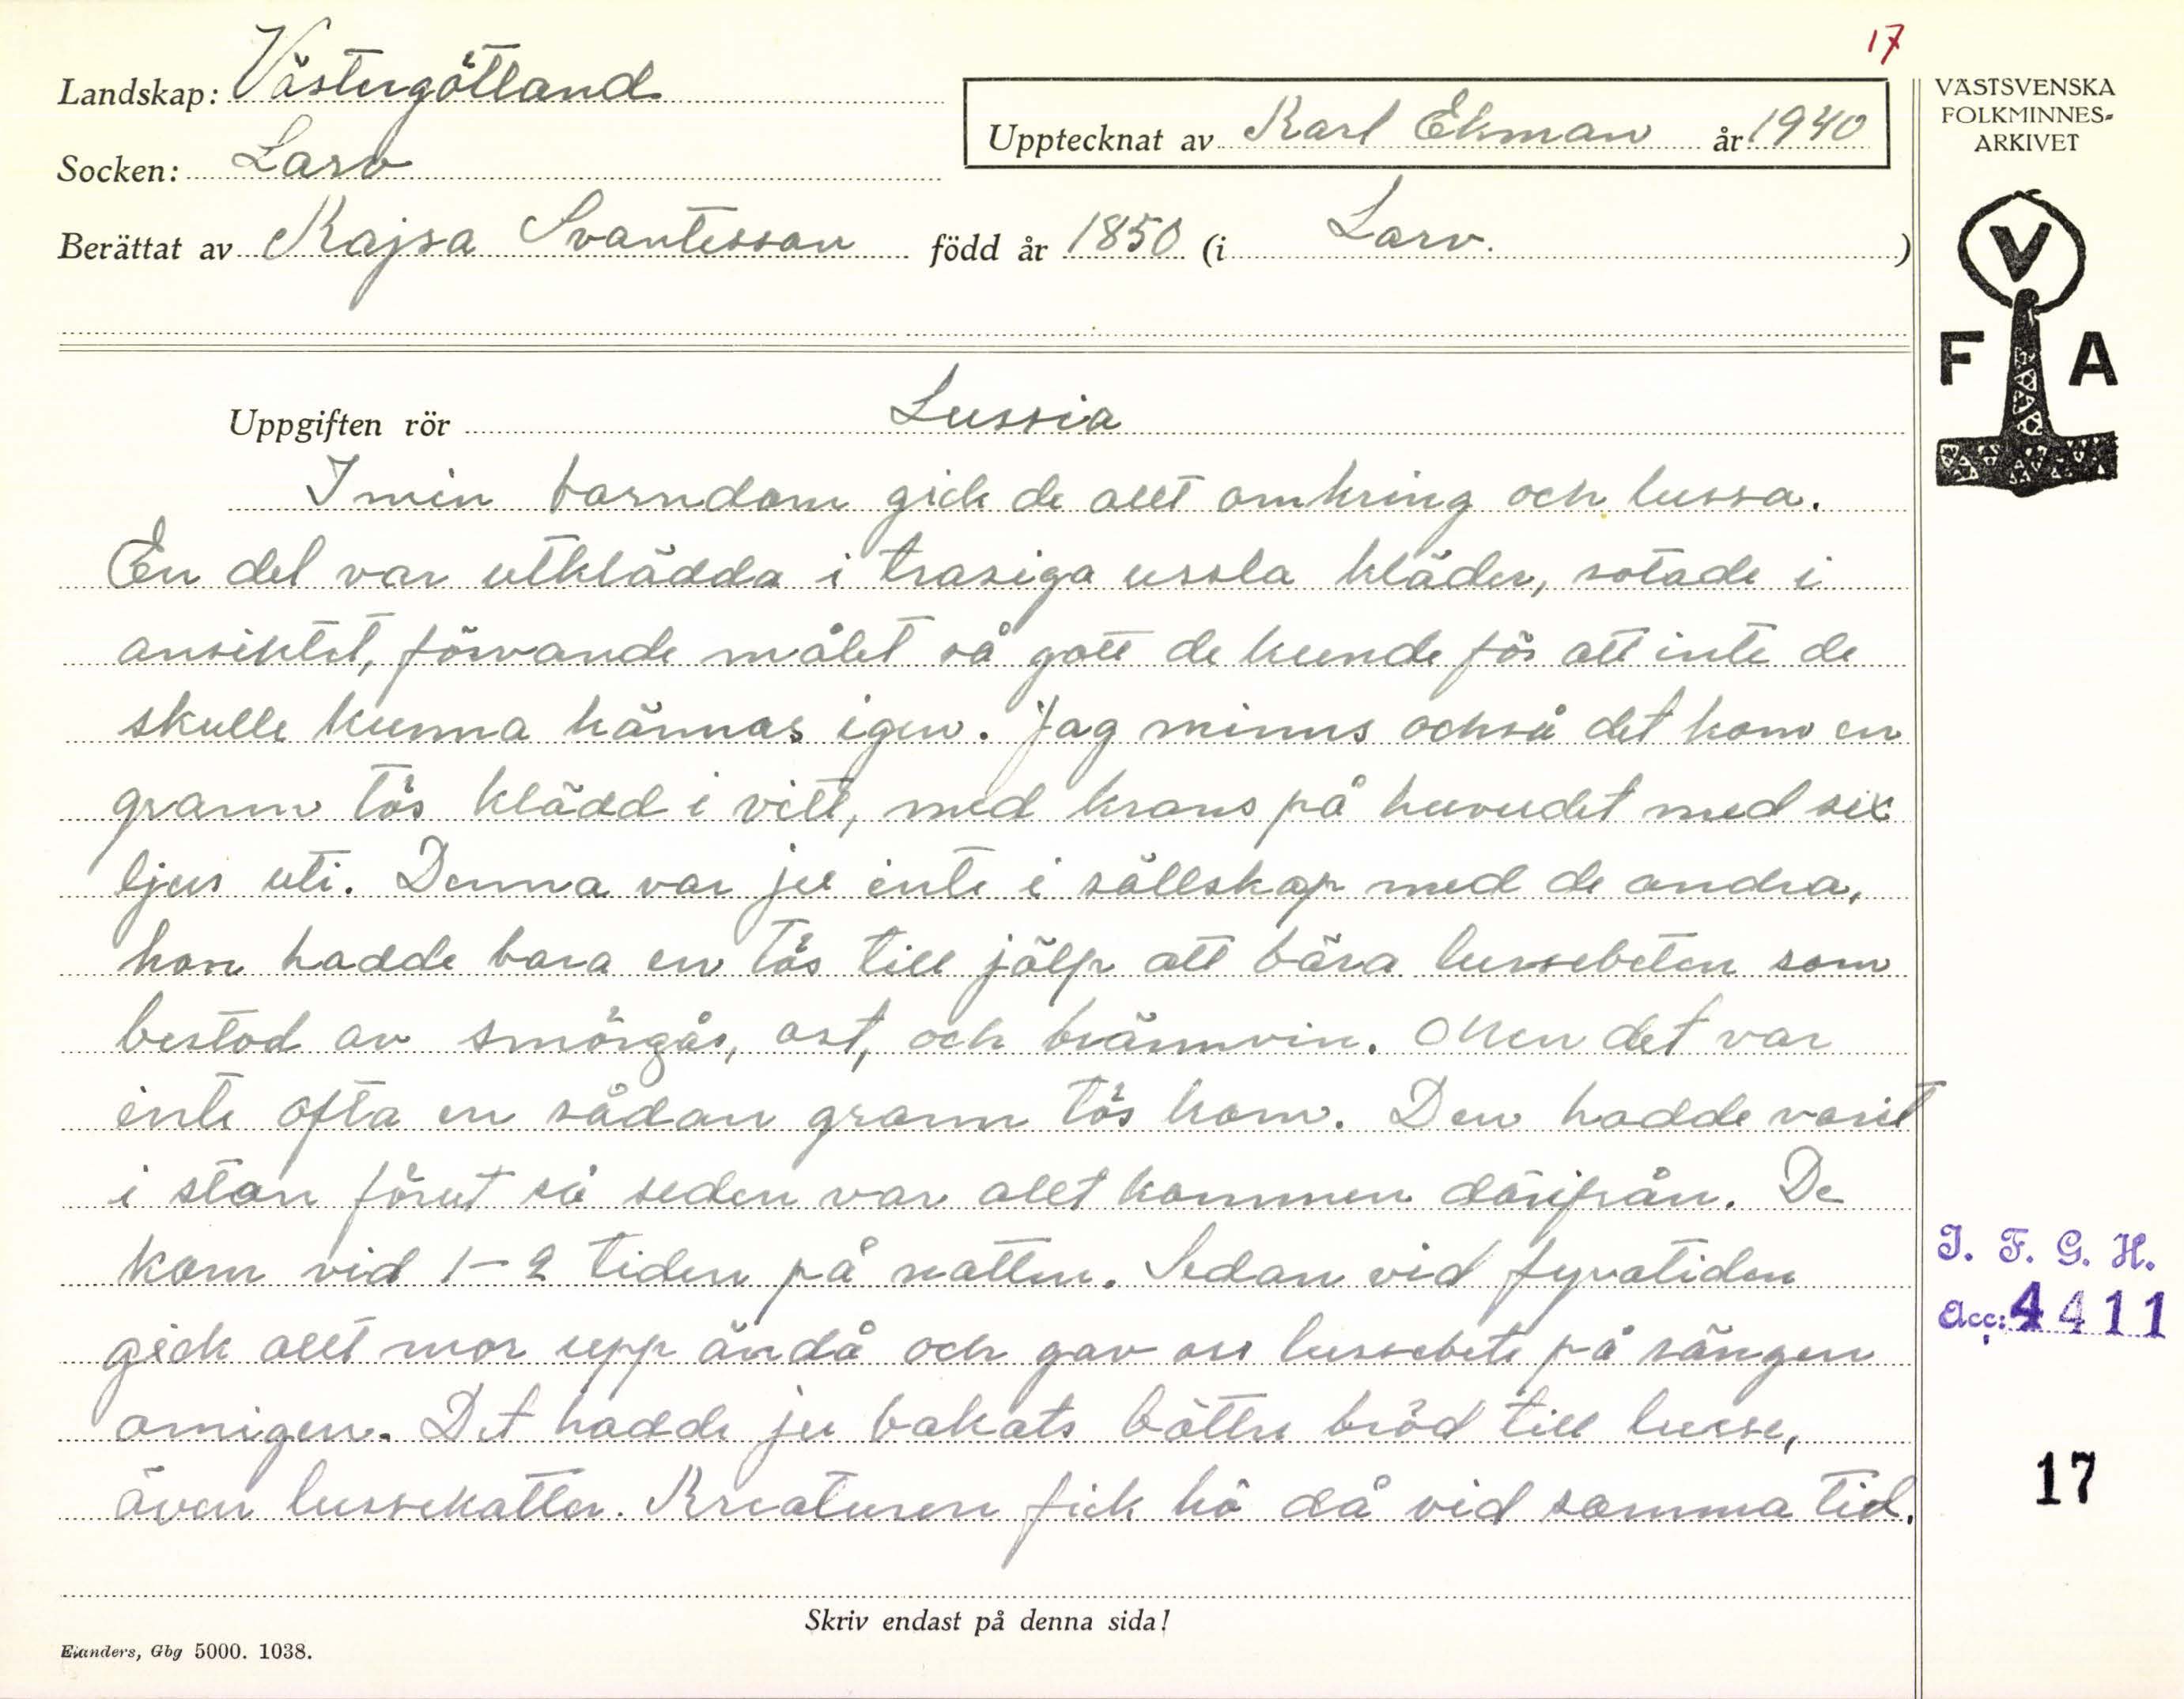 17
Landskap: Västergötland
Socken: Larv
Upptecknat av Karl Ekman år 1940
Berättat av Kajsa Svantesson född år 1850 (i Larv. )
VÄSTSVENSKA
FOLKMINNES-
ARKIVET
V
F A
Uppgiften rör Lussia
I min barndom gick de allt omkring och lussa.
En del var utklädda i trasiga ussla kläder, sotade i
ansiktet, förvande målet så gott de kunde för att inte de
skulle kunna kännas igen. Jag minns också det kom en
grann tös klädd i vitt, med krans på huvudet med six
ljus uti. Denna var ju inte i sällskap med de andra,
hon hadde bara en tös till jälp att bära lussebeten som
bestod av smörgås, ost, och brännvin. Men det var
inte ofta en sådan grann tös kom. Den hadde varit
i stan förut så seden var allt kommen därifrån. De
kom vid 1-2 tiden på natten. Sedan vid fyratiden
gick allt mor upp ändå och gav oss lussebete på sängen
omigen. Det hadde ju bakats bättre bröd till lusse,
även lussekatter. Kreaturen fick hö då vid samma tid.
I. F. G. H.
Acc: 4411
17
Skriv endast på denna sida!
Elanders, Gbg 5000. 1038.